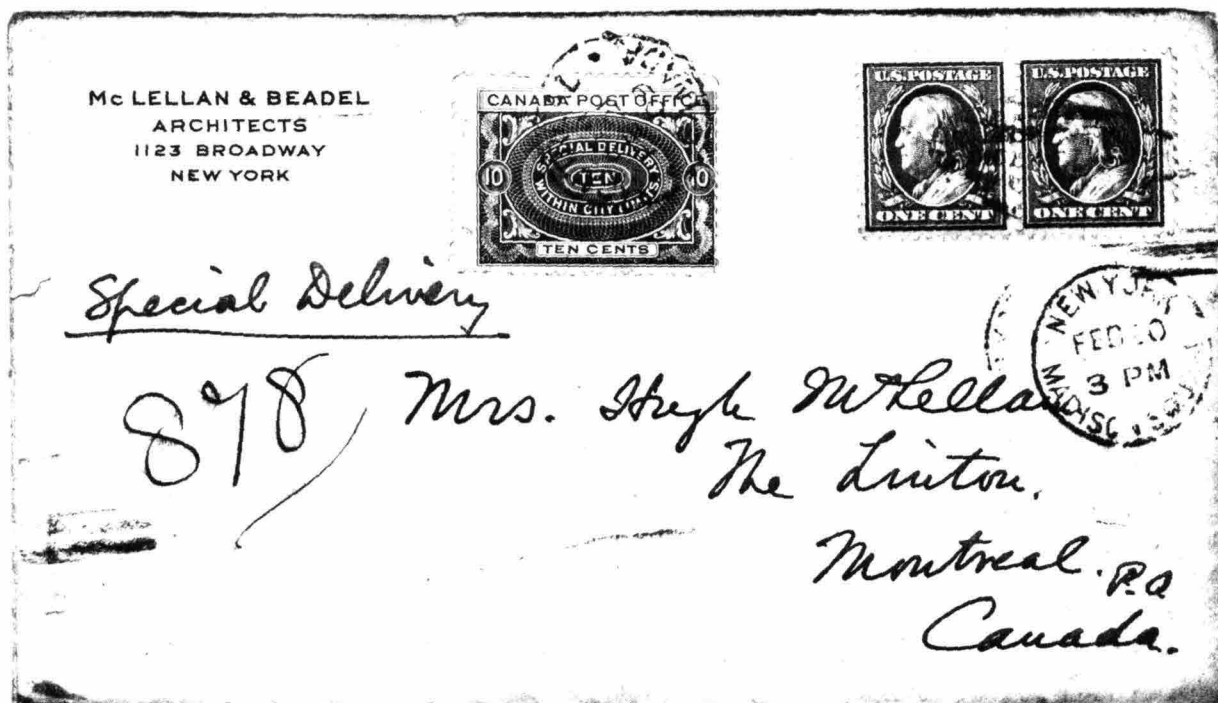 Mc LELLAN & BEADEL
ARCHITECTS
1123 BROADWAY
NEW YORK
CANADA POST OFFICE
10
SPECIAL DELIVERY
TEN
WITHIN CITY LIMITS
10
TEN CENTS
U.S.POSTAGE
ONE CENT
U.S.POSTAGE
ONE CENT
Special Delivery
878
NEW YORK
FEB
3 PM
Mrs. Hugh McLellan
The Linton.
Montreal. P.Q
Canada.